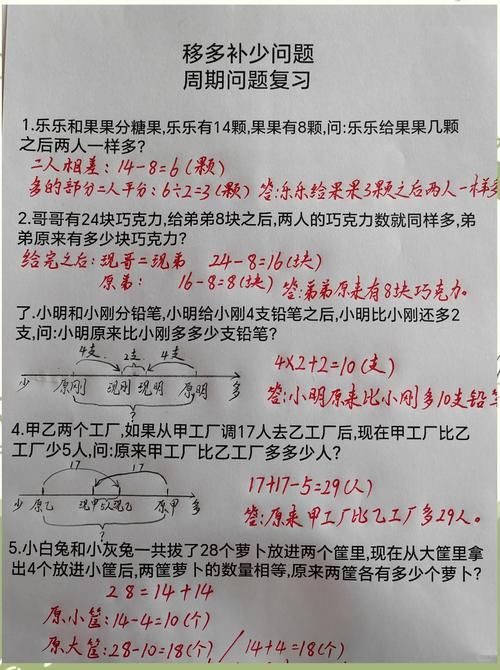 移多补少问题
周期问题复习
1.乐乐和果果分糖果,乐乐有14颗,果果有8颗,问:乐乐给果果几颗
之后两人一样多?
二人相差: 14-8=6(颗)
多的部分二人平分: 6÷2=3(颗) 答:乐乐给果果3颗之后两人一样多
2.哥哥有24块巧克力,给弟弟8块之后,两人的巧克力数就同样多,弟
弟原来有多少块巧克力?
给完之后: 现哥=现弟 24-8=16(块)
原弟: 16-8=8(块) 答:弟弟原来有8块巧克力。
了.小明和小刚分铅笔,小明给小刚4支铅笔之后,小明比小刚还多2
支,问:小明原来比小刚多多少支铅笔?
4支 2支 4支
4×2+2=10(支)
少 原刚 现刚 现明 原明 多
?
答:小明原来比小刚多10支铅笔
4.甲乙两个工厂,如果从甲工厂调17人去乙工厂后,现在甲工厂比乙
工厂少5人,问:原来甲工厂比乙工厂多多少人?
17 17
17+17-5=29(人)
少 原乙 现甲 5人 现乙 原甲 多
?
答:原来甲工厂比乙工厂多29人。
5.小白兔和小灰兔一共拔了28个萝卜放进两个筐里,现在从大筐里拿
出4个放进小筐后,两筐萝卜的数量相等,原来两筐各有多少个萝卜?
28=14+14
原小筐: 14-4=10(个)
原大筐: 28-10=18(个) / 14+4=18(个)